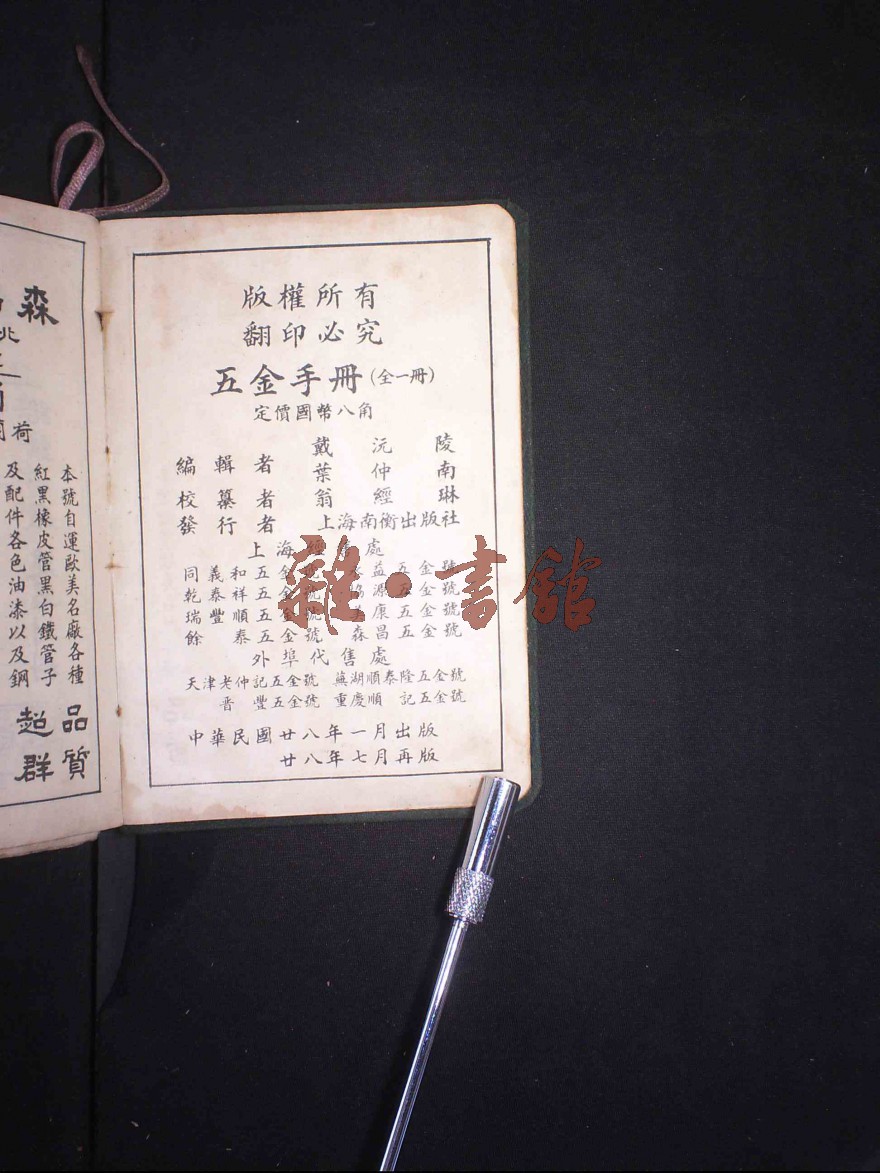 版權所有
翻印必究
五金手冊(全一冊)
定價國幣八角
編輯者 戴沅陵
葉仲南
校纂者 翁經琳
發行者 上海南衡出版社
上海經售處
同義和五金號 益五金號
乾泰祥五金號 源五金號
瑞豐順五金號 康五金號
餘泰五金號 森昌五金號
外埠代售處
天津老仲記五金號 蕪湖順泰隆五金號
晋豐五金號 重慶順記五金號
中華民國廿八年一月出版
廿八年七月再版
森
北
荷
本號自運歐美名廠各種
紅黑橡皮管黑白鐵管子
及配件各色油漆以及鋼
品質
超群
雜·書館